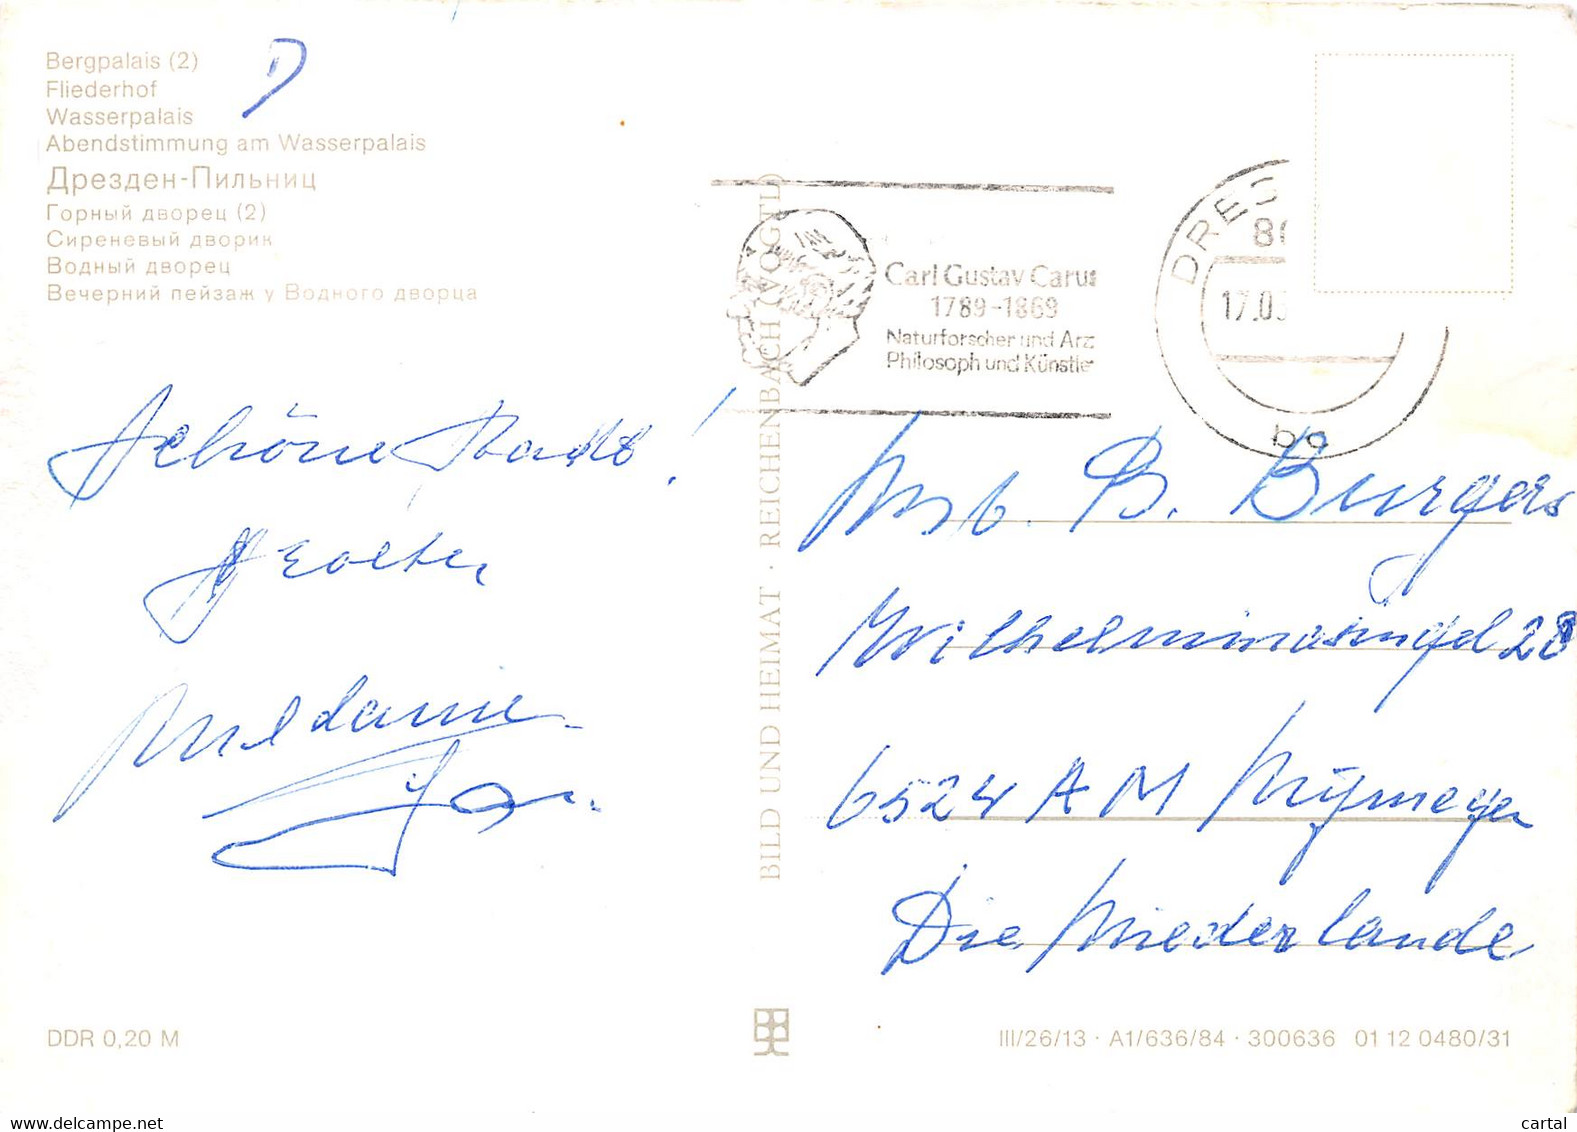 Bergpalais (2)
Fliederhof
Wasserpalais
Abendstimmung am Wasserpalais
Дрезден-Пильниц
Горный дворец (2)
Сиреневый дворик
Водный дворец
Вечерний пейзаж у Водного дворца
D
BILD UND HEIMAT · REICHENBACH (VOGTL)
Carl Gustav Carus
1789-1869
Naturforscher und Arz
Philosoph und Künstle
DRES
80
17.03
bc
Schöne Stadt!
Groeten
Jos.
B. Burgers
Wilhelminasingel 28
6524 AM Nijmegen
Die Niederlande
DDR 0,20 M
III/26/13 · A1/636/84 · 300636 01 12 0480/31
www.delcampe.net
cartal